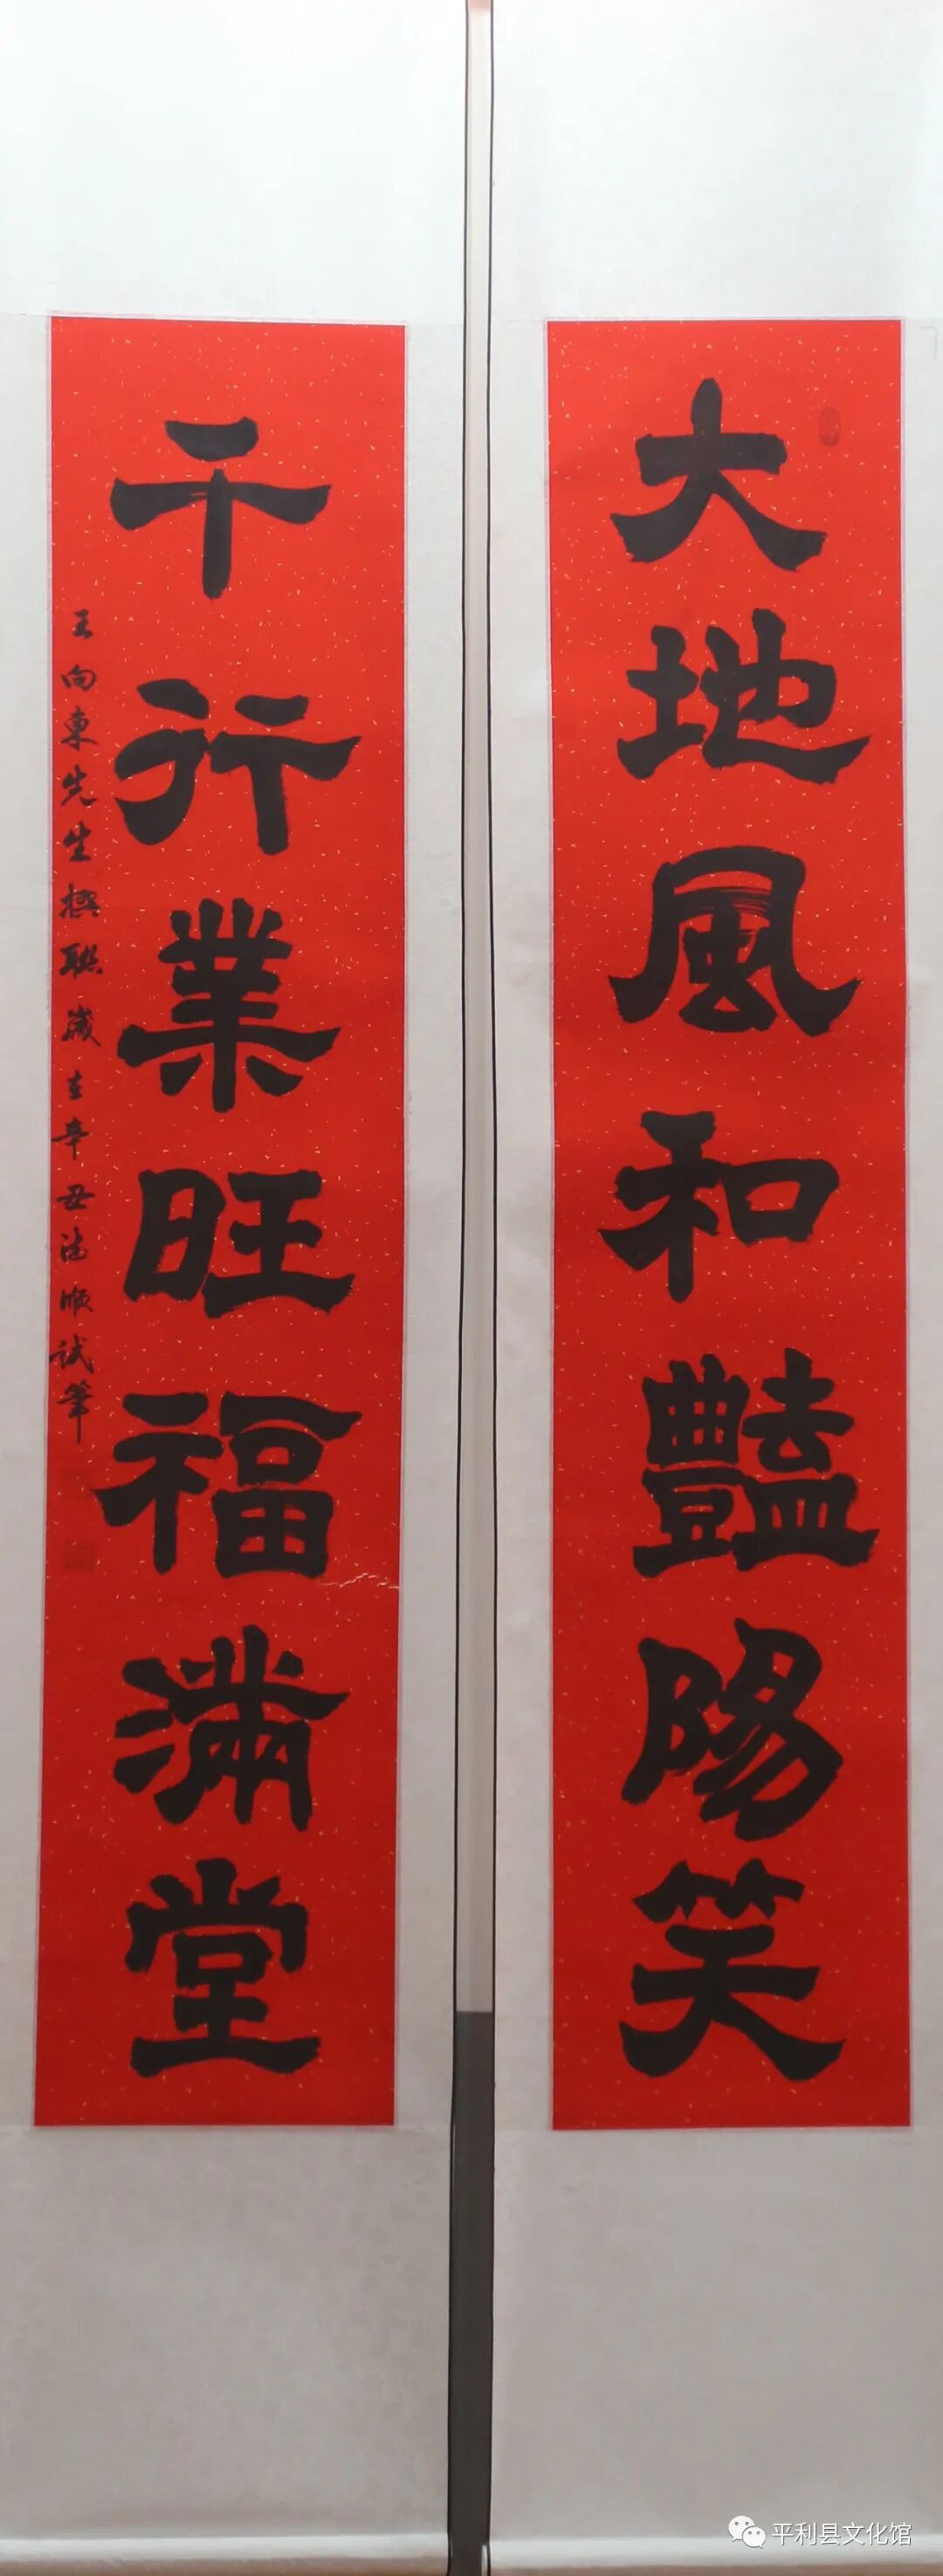 大地風和豔陽笑
千行業旺福滿堂
王向東先生撰聯歲在辛丑德順試筆
平利县文化馆